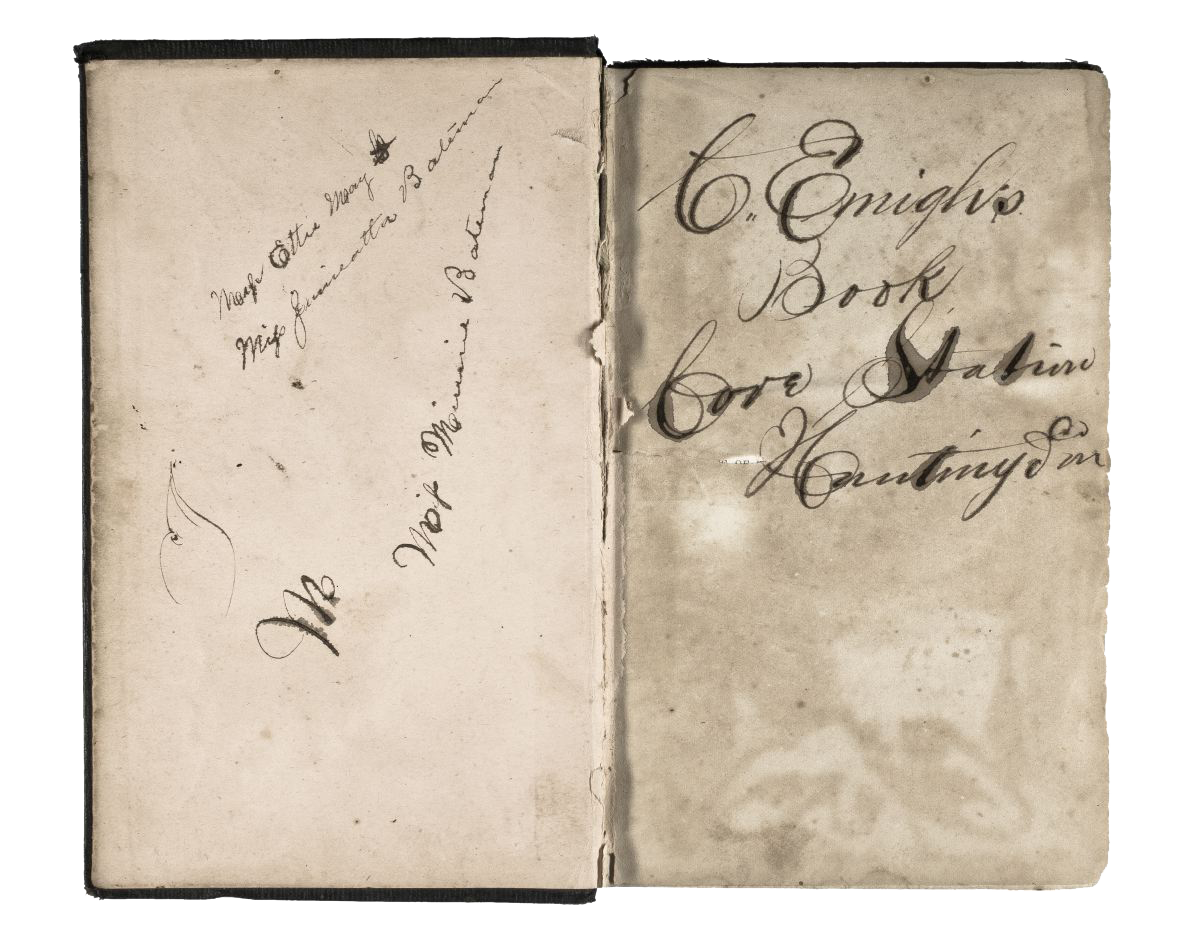 Miss Ettie May
Miss Bateman
Miss Minnie Bateman
M
C. Emigh's
Book
Cove Station
Huntingdon